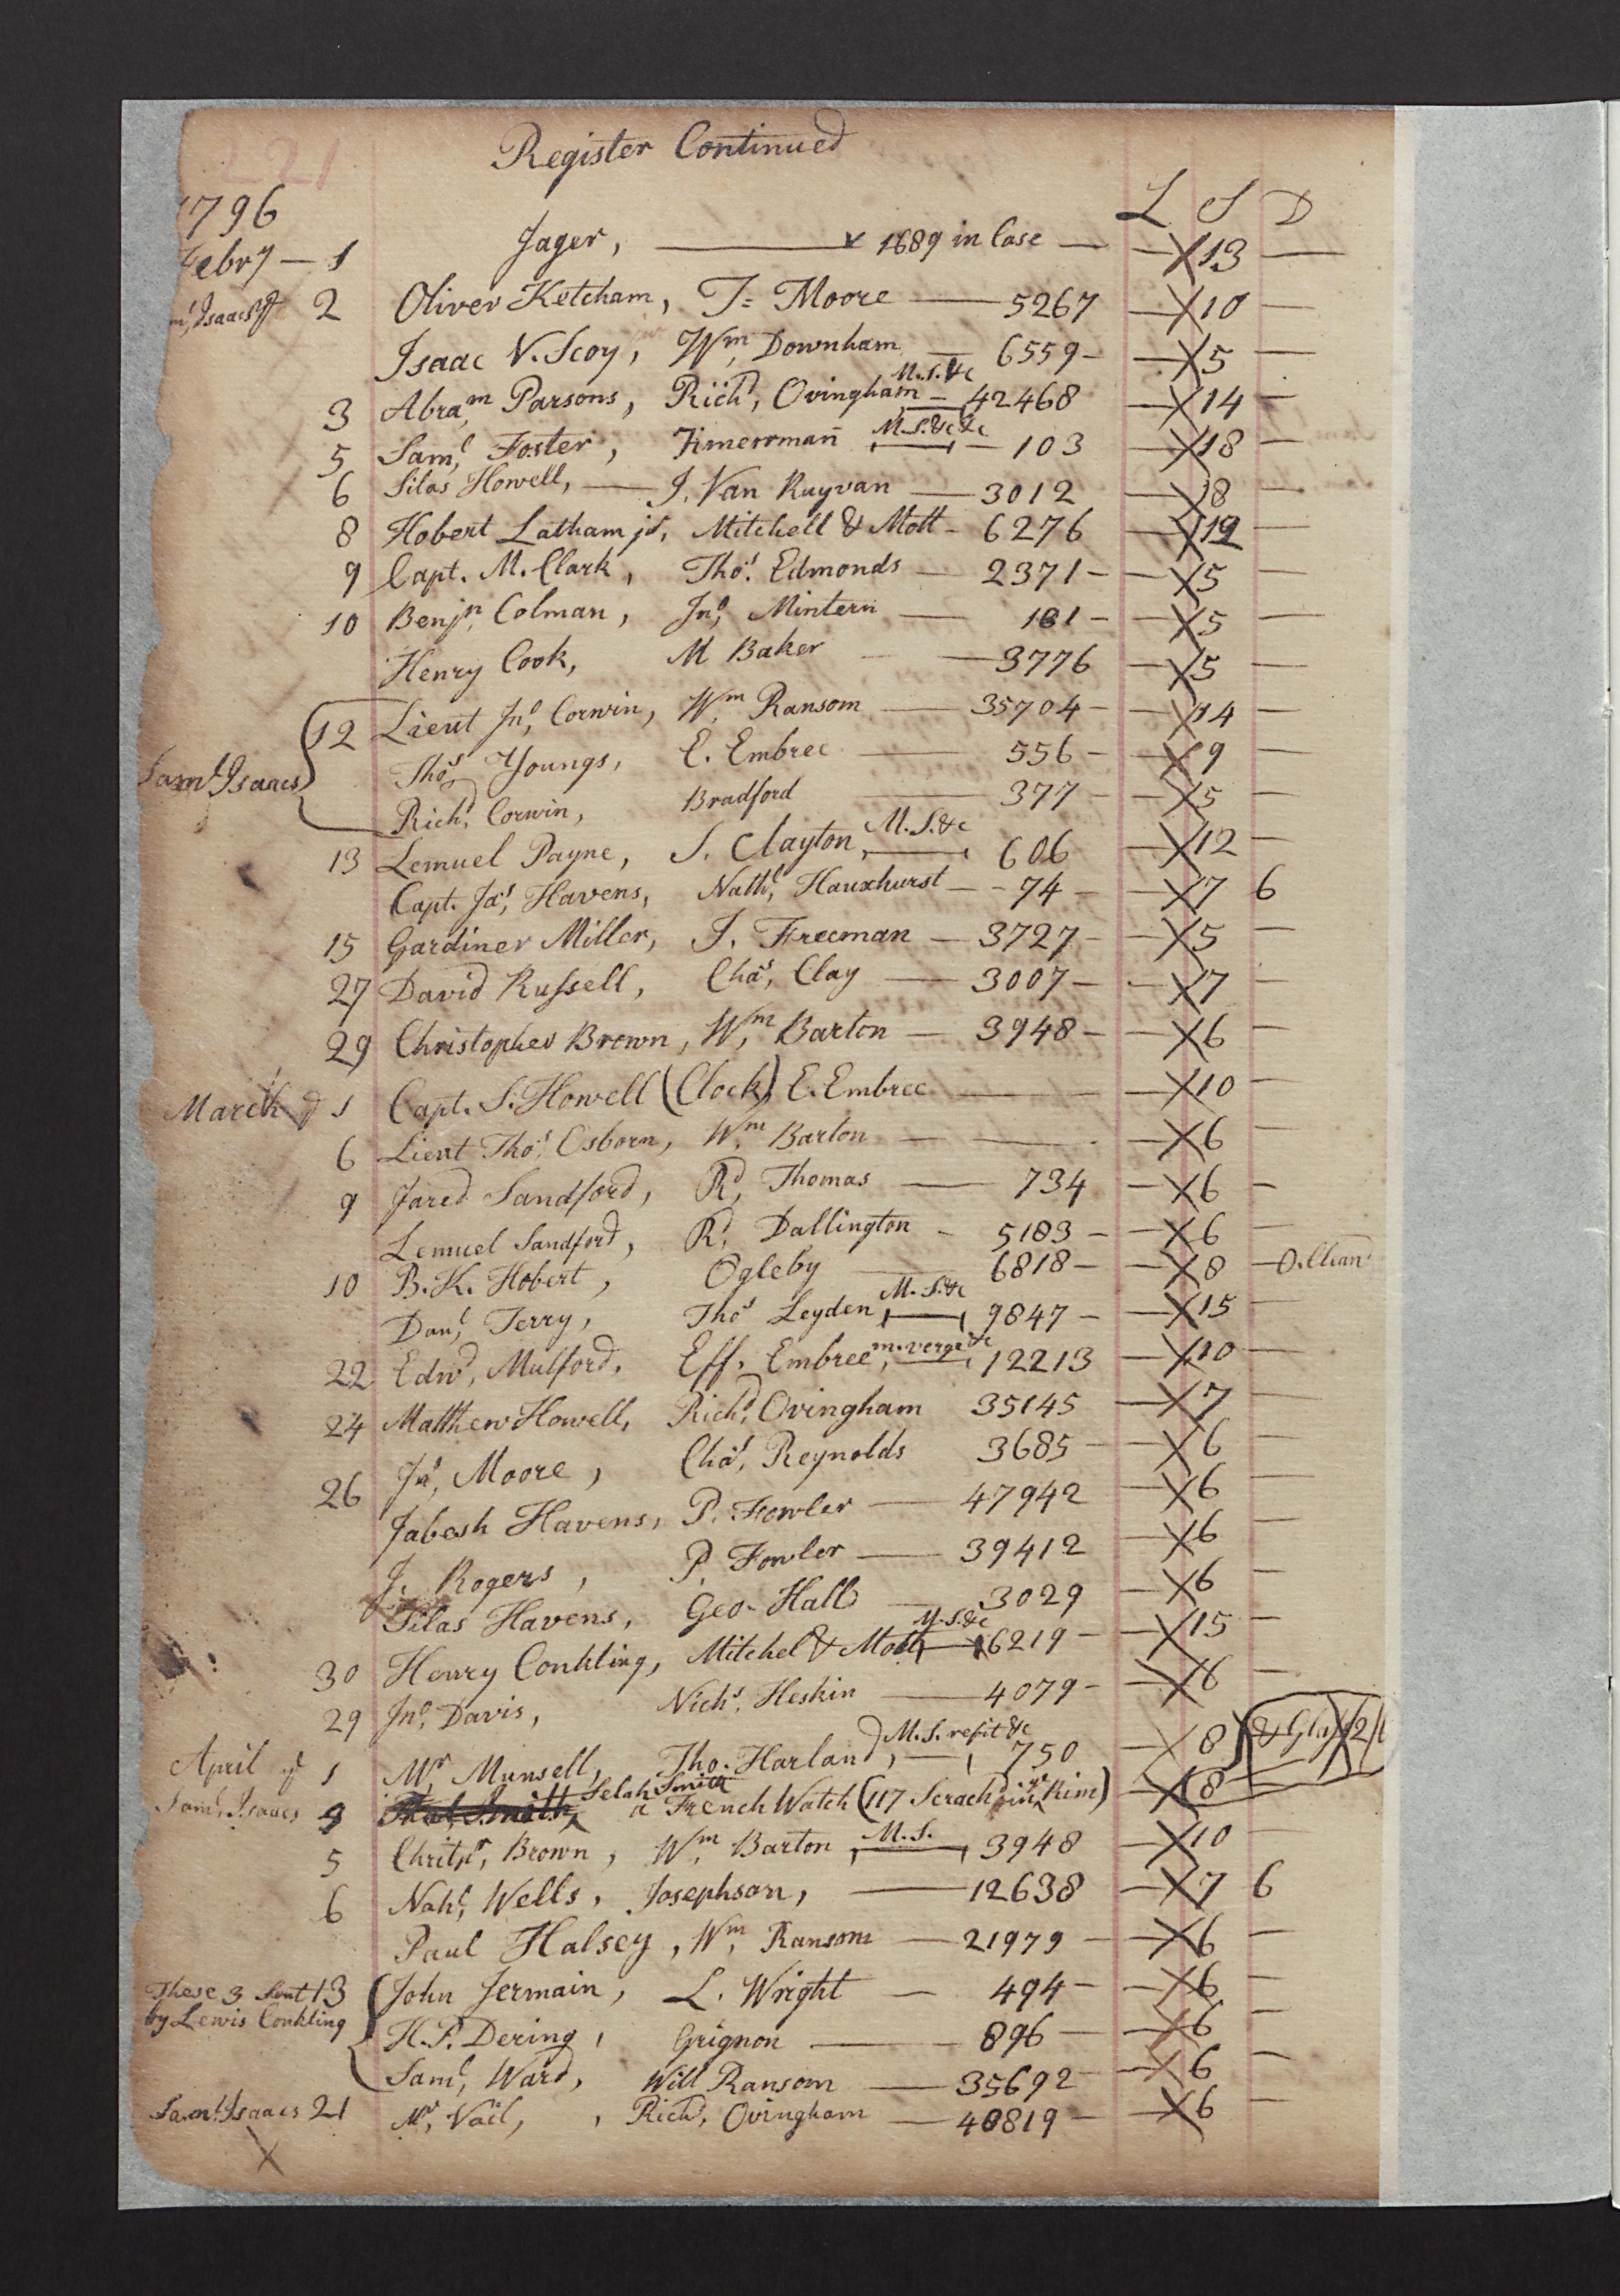 221
Register Continued
1796
L S D
Febry — 1 Jager, — 1689 in Case — — X 13 —
Isaacs 2 Oliver Ketcham, T= Moore — 5267 — X 10 —
Isaac V. Scoy, Wm, Downham — 6559 — — X 5 —
M.S.&c
3 Abram Parsons, Richd, Ovingham — 42468 — X 14 —
M.S.&c &c
5 Saml, Foster, Timerrman — 103 — X 18 —
6 Silas Howell, — J. Van Ruyvan — 3012 — X 8 —
8 Hobert Latham jr, Mitchell & Mott — 6276 — X 12 —
9 Capt. M. Clark, Thos. Edmonds — 2371 — — X 5 —
10 Benjn, Colman, Jno, Mintern — 181 — — X 5 —
Henry Cook, M Baker — 3776 — X 5 —
12 Lieut Jno, Corwin, Wm, Ransom — 35704 — — X 14 —
Thos, Youngs, E. Embree — 556 — — X 9 —
Saml Isaacs
Richd, Corwin, Bradford — 377 — — X 5 —
M.S.&c
13 Lemuel Payne, S. Clayton, — 606 — X 12 —
Capt. Jas, Havens, Nathl, Hauxhurst — - 74 — — X 7 6
15 Gardiner Miller, J. Freeman — 3727 — — X 5 —
27 David Russell, Chas, Clay — 3007 — — X 7 —
29 Christopher Brown, Wm, Barton — 3948 — — X 6 —
March 1 Capt. S. Howell (Clock) E. Embree — — X 10 —
6 Lieut Thos, Osborn, Wm, Barton — — — X 6 —
9 Jared Sandford, Rd, Thomas — 734 — X 6 —
Lemuel Sandford, Rd, Dallington — 5183 — — X 6 —
10 B. K. Hobert, Ogleby — 6818 — — X 8 —
M.S.&c
Danl, Terry, Thos Leyden, — 9847 — — X 15 —
m. verge &c
22 Edwd, Mulford, Eff. Embree, — 12213 — X 10 —
24 Matthew Howell, Richd, Ovingham 35145 — X 7 —
26 Jno, Moore, Chas, Reynolds 3685 — — X 6 —
Jabesh Havens, P. Fowler — 47942 — X 6 —
J. Rogers, P. Fowler — 39412 — X 6 —
Silas Havens, Geo. Hall — 3029 — X 6 —
M.S.&c
30 Henry Conkling, Mitchel & Mott, — 6219 — — X 15 —
29 Jno, Davis, Nichs, Heskin — 4079 — — X 6 —
M.S. refit &c
April 1 Mr, Munsell, Tho. Harland, — 750 — X 8
Selah Smith
Saml, Isaacs 3 a French Watch (117 Scrach in ye Rim) — X 8
M.S.
5 Christr, Brown, Wm, Barton, — 3948 — X 10 —
6 Nahl, Wells, Josephson, — 12638 — X 7 6
Paul Halsey, Wm, Ransom — 21979 — — X 6 —
These 3 Sent 13 John Jermain, L. Wright — 494 — — X 6 —
by Lewis Conkling H.P. Dering, Grignon — 896 — — X 6 —
Saml, Ward, Will Ransom — 35692 — — X 6 —
Saml Isaacs 21 Mr, Vail, , Richd, Ovingham — 40819 — — X 6 —
X